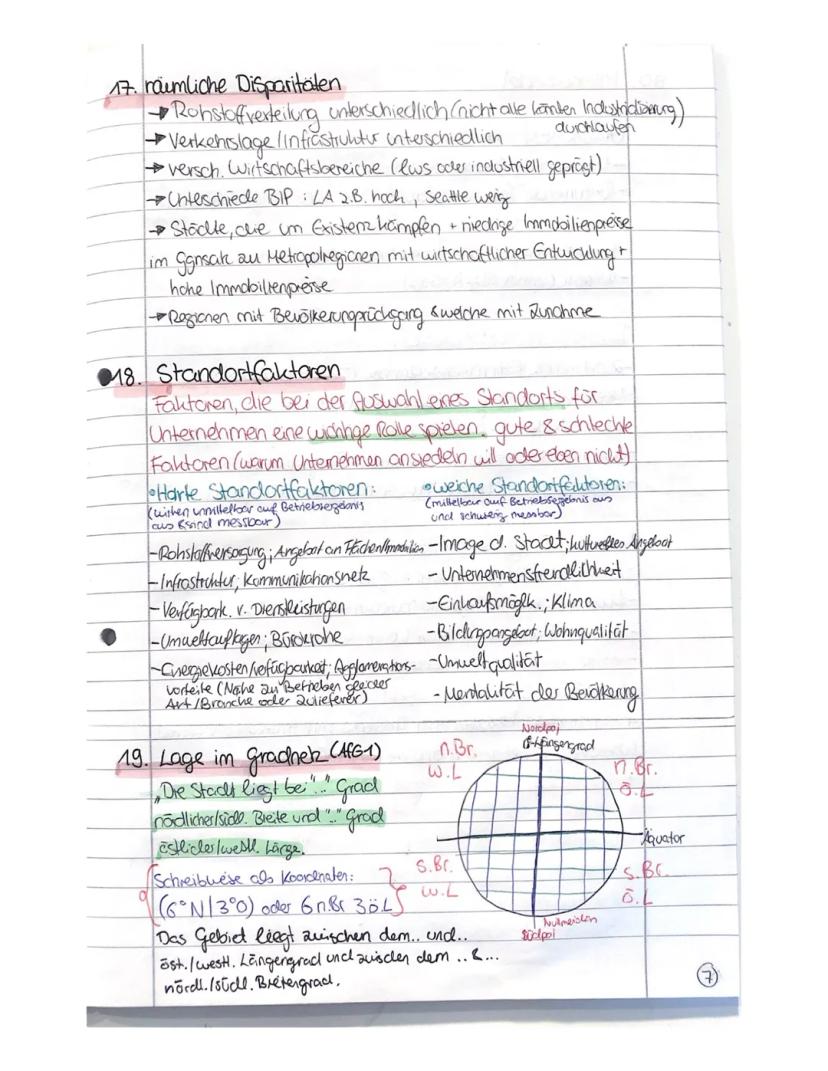 17. räumliche Disparitäten
→ Rohstoffverteilung unterschiedlich (nicht alle konnten Industrialisierung)
durchlaufen
→ Verkehrslage/Infrastruktur unterschiedlich
→ versch. Wirtschaftsbereiche (lws oder industriell geprägt)
→ Unterschiede BIP: LA z.B. hoch, Seattle wenig
→ Städte, die um Existenz kämpfen + niedrige Immobilienpreise
im Ggnsatz zu Metropolregionen mit wirtschaftlicher Entwicklung +
hohe Immobilienpreise
→ Regionen mit Bevölkerungsrückgang & welche mit Zunahme
18. Standortfaktoren
Faktoren, die bei der Auswahl eines Standorts für
Unternehmen eine wichtige Rolle spielen. gute & schlechte
Faktoren (warum Unternehmen ansiedeln will oder eben nicht)
• Harte Standortfaktoren:
(wirken unmittelbar auf Betriebsergebnis
aus & sind messbar)
- Rohstoffversorgung; Angebot an Flächen/Immobilien
- Infrastruktur; Kommunikationsnetz
- Verfügbark. v. Dienstleistungen
- Umweltauflagen; Bürokratie
- Energiekosten/verfügbarkeit; Agglomerations-
vorteile (Nähe zu Betrieben gleicher
Art/Branche oder Zulieferer)
• weiche Standortfaktoren:
(mittelbar auf Betriebsergebnis aus
und schwierig messbar)
- Image d. Stadt; kulturelles Angebot
- Unternehmensfreundlichkeit
- Einkaufsmöglk.; Klima
- Bildungsangebot; Wohnqualität
- Umweltqualität
- Mentalität der Bevölkerung
19. Lage im Gradnetz (AFG1)
„Die Stadt liegt bei ".." Grad
nördlicher/südl. Breite und ".." Grad
östlicher/westl. Länge.
Schreibweise als Koordinaten:
(6°N|3°O) oder 6n.Br 3ö.L
Das Gebiet liegt zwischen dem.. und..
öst./westl. Längengrad und zwischen dem .. & ...
nördl./südl. Breitengrad.
Nordpol
Längengrad
n.Br.
W.L
n.Br.
Ö.L
Äquator
S.Br.
W.L
S.Br.
Ö.L
Nullmeridian
Südpol
7